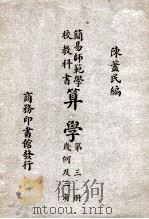 陳藎民編
簡易師範學
校教科書
算學
第三册
幾何及三角
商務印書館發行